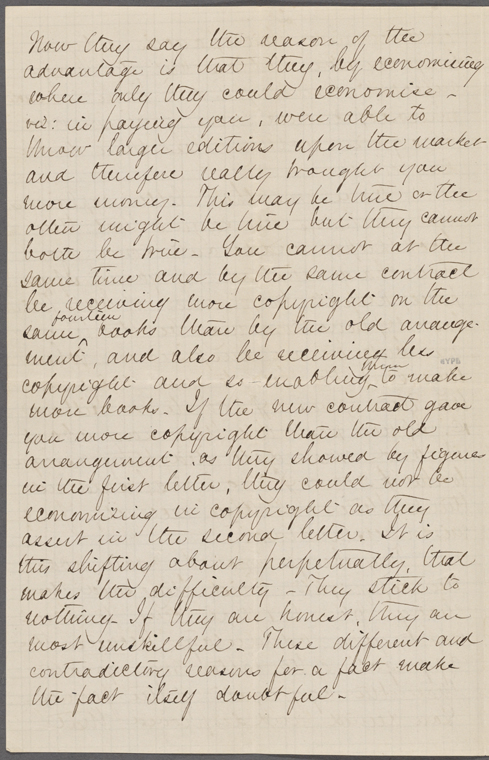 Now they say the reason of the
advantage is that they, by economising
where only they could economise -
viz: in paying you, were able to
throw larger editions upon the market
and therefore really brought you
more money. This may be true or the
other might be true but they cannot
both be true - You cannot at the
same time and by the same contract
be receiving more copyright on the
fourteen
same books than by the old arrange-
ment, and also be receiving less
NYPB
them
copyright and so enabling to make
more books. If the new contract gave
you more copyright than the old
arrangement as they showed by figures
in the first letter, they could not be
economizing in copyright as they
assert in the second letter. It is
this shifting about perpetually, that
makes the difficulty - They stick to
nothing. If they are honest, they are
most unskillful - These different and
contradictory reasons for a fact make
the fact itself doubtful -